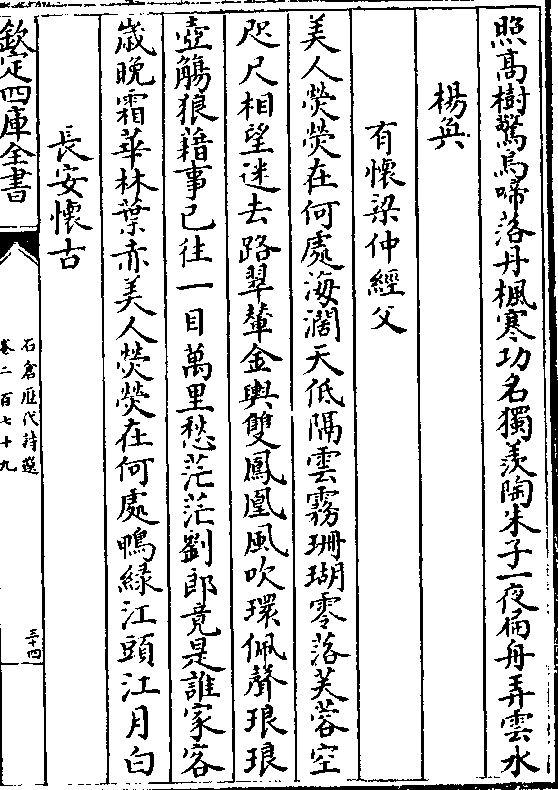 照高樹驚烏啼落丹楓寒功名獨羨陶朱子一夜扁舟弄雲水
楊奐
有懷梁仲經父
美人熒熒在何處海濶天低隔雲霧珊瑚零落芙蓉空
咫尺相望迷去路翠輦金輿雙鳳凰風吹環佩聲琅琅
壺觴狼藉事已往一目萬里愁茫茫劉郎竟是誰家客
歲晚霜華林葉赤美人熒熒在何處鴨緑江頭江月白
長安懷古
欽定四庫全書
石倉歴代詩選
卷二百七十九
三十四